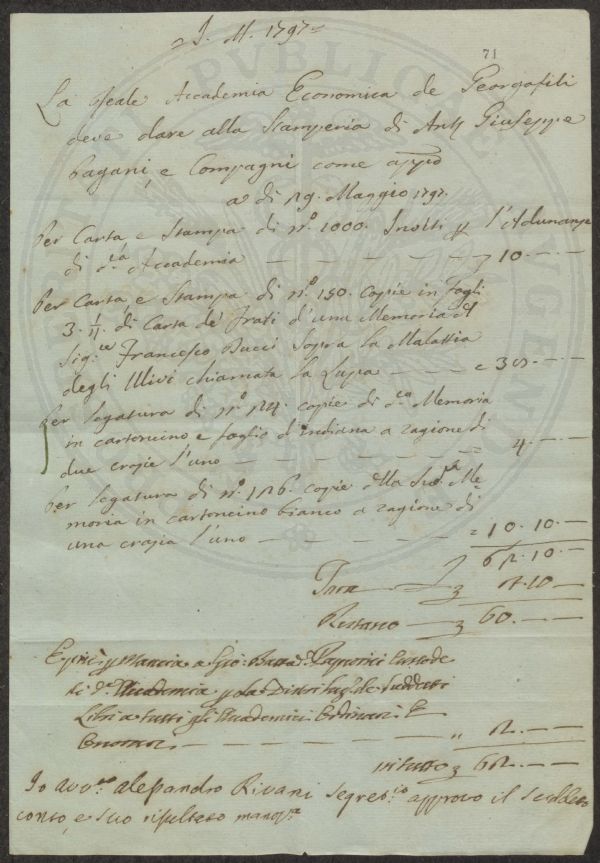 = J. M. 1797 =
71
La Reale Accademia Economica de Georgofili
deve dare alla Stamperia di Ant. Giuseppe
Pagani, e Compagni come app.o
a di 29. Maggio 1797.
Per Carta e Stampa di N.o 1000. Inviti p l'Adunanze
di d.ta Accademia 10. — —
Per Carta e Stampa di N.o 150. copie in fogli
3. di Carta de' Frati d'una Memoria del
Sig.re Francesco Bucci sopra la Malattia
degli Ulivi chiamata la Lupa 38. — —
Per legatura di N.o 24. copie di d.ta Memoria
in cartoncino e foglio d'Indiana a ragione di
due crazie l'uno = 4. — —
Per legatura di N.o 126. copie della Sud.ta Me
moria in cartoncino bianco a ragione di
una crazia l'uno = 10. 10. —
62. 10. —
Tara 2. 10 —
Restano 60. — —
E più p Mancia a Gio: Batta Custode
di d.a Accademia p la Distribuz.e de suddetti
Libri a tutti gli Accademici Ordinari E
Onorari 2. — —
in tutto 62. — —
Io Avv.to Alessandro Rivani Segret.io approvo il suddetto
conto, e suo resultato mano p.a
PUBLICAE